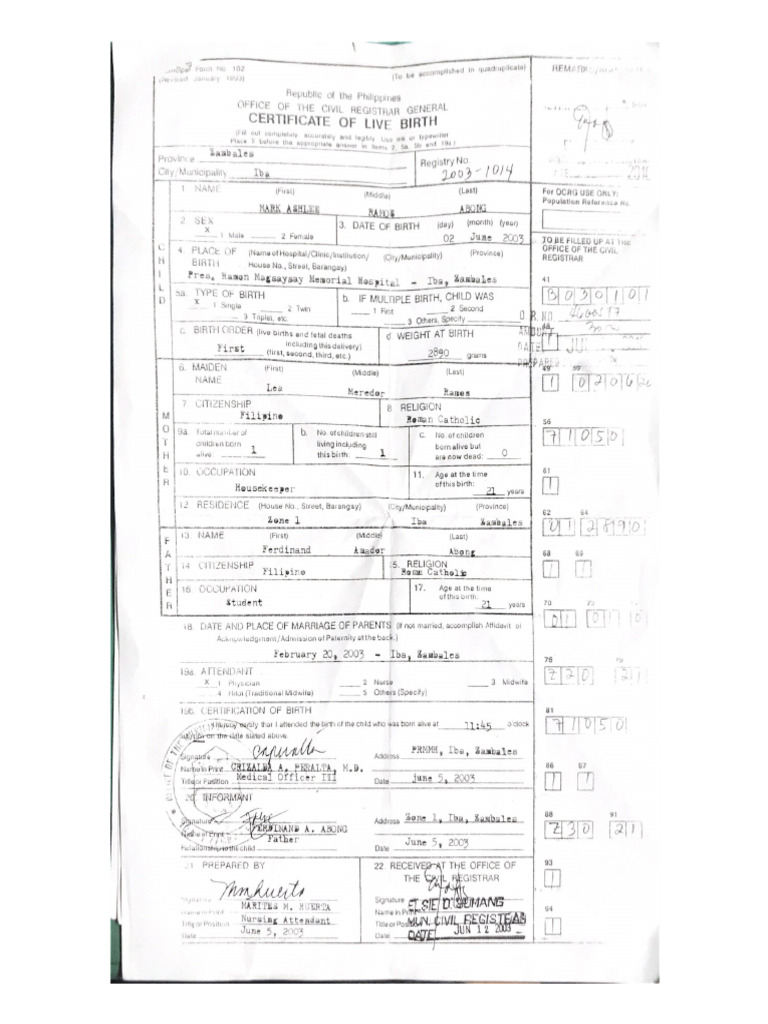 Form No. 102
(Revised January 1993)
(To be accomplished in quadruplicate)
REMARKS
Republic of the Philippines
OFFICE OF THE CIVIL REGISTRAR GENERAL
CERTIFICATE OF LIVE BIRTH
(Fill out completely, accurately and legibly. Use ink or typewriter.
Place X before the appropriate answer in items 2, 5a, 5b and 19a.)
Province Zambales
City/Municipality Iba
Registry No. 2003-1014
For OCRG USE ONLY:
Population Reference No.
1. NAME (First) (Middle) (Last)
MARK ASHLEE RAMOS ABONG
2. SEX
X 1 Male 2 Female
3. DATE OF BIRTH (day) (month) (year)
02 June 2003
TO BE FILLED UP AT THE
OFFICE OF THE CIVIL
REGISTRAR
CHILD
4. PLACE OF BIRTH (Name of Hospital/Clinic/Institution/ House No., Street, Barangay) (City/Municipality) (Province)
Pres. Ramon Magsaysay Memorial Hospital - Iba, Zambales
5a. TYPE OF BIRTH
X 1 Single 2 Twin
3 Triplet, etc.
b. IF MULTIPLE BIRTH, CHILD WAS
1 First 2 Second
3 Others, Specify
41
B030101
c. BIRTH ORDER (live births and fetal deaths including this delivery)
First (first, second, third, etc.)
d. WEIGHT AT BIRTH
2890 grams
O.R. NO.
49 50
MOTHER
6. MAIDEN NAME (First) (Middle) (Last)
Lea Meredor Ramos
7. CITIZENSHIP
Filipino
8. RELIGION
Roman Catholic
56
71050
9a. Total number of children born alive: 1
b. No. of children still living including this birth: 1
c. No. of children born alive but are now dead: 0
10. OCCUPATION
Housekeeper
11. Age at the time of this birth: 21 years
61
1
12. RESIDENCE (House No., Street, Barangay) (City/Municipality) (Province)
Zone 1 Iba Zambales
62 64
012890
FATHER
13. NAME (First) (Middle) (Last)
Ferdinand Amador Abong
14. CITIZENSHIP
Filipino
15. RELIGION
Roman Catholic
68 69
1 1
16. OCCUPATION
Student
17. Age at the time of this birth: 21 years
70
18. DATE AND PLACE OF MARRIAGE OF PARENTS (If not married, accomplish Affidavit of
Acknowledgment/Admission of Paternity at the back.)
February 20, 2003 - Iba, Zambales
19a. ATTENDANT
X 1 Physician 2 Nurse 3 Midwife
4 Hilot (Traditional Midwife) 5 Others (Specify)
76
220 21
19b. CERTIFICATION OF BIRTH
I hereby certify that I attended the birth of the child who was born alive at 11:45 o'clock
on the date stated above.
81
71050
Signature
Name in Print GRIZALDA A. PERALTA, M.D.
Title or Position Medical Officer III
Address PRMMH, Iba, Zambales
Date june 5, 2003
86 87
1 1
20. INFORMANT
Signature
Name in Print FERDINAND A. ABONG
Relationship to the child Father
Address Zone 1, Iba, Zambales
Date June 5, 2003
88 91
230 21
21. PREPARED BY
Signature
Name in Print MARITES M. HUERTA
Title or Position Nursing Attendant
Date June 5, 2003
22. RECEIVED AT THE OFFICE OF
THE CIVIL REGISTRAR
Signature
Name in Print ELSIE D. SUMANG
Title or Position MUN. CIVIL REGISTRAR
Date DATE JUN 12 2003
93
94